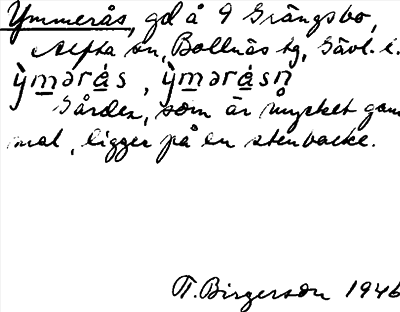 Ymmerås, gd å 9 Grängsbo,
Alfta sn, Bollnäs tg, Gävl. l.
ỳmərás, ỳmərásn̥
Gården, som är mycket gam
mal, ligger på en stenbacke.
T. Birgerson 1946